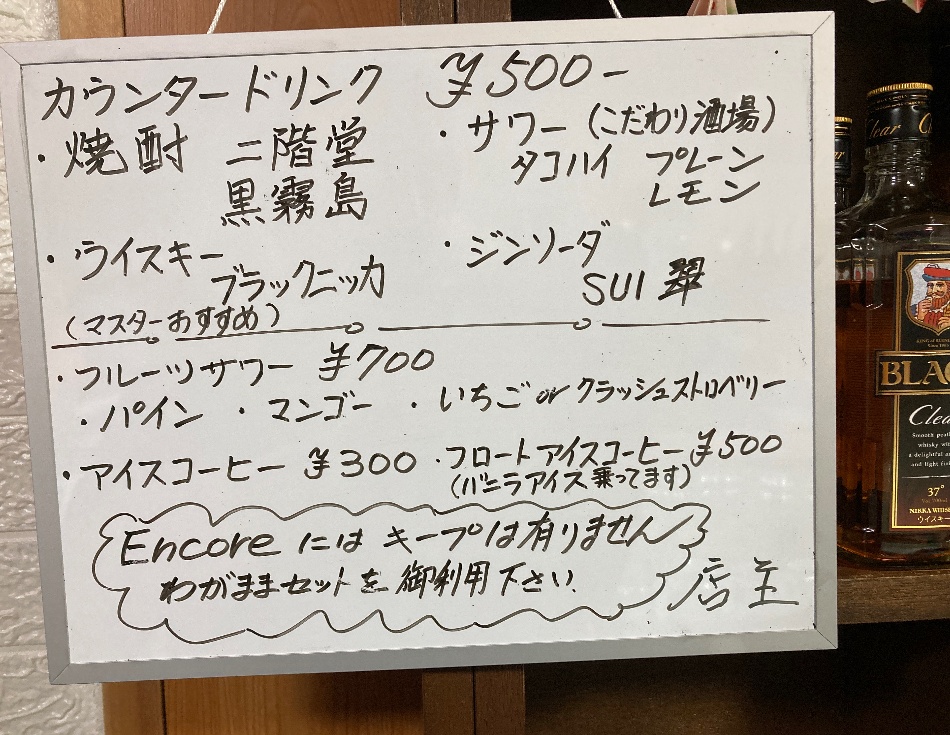 カウンタードリンク ¥500-
・焼酎 二階堂
黒霧島
・サワー (こだわり酒場)
タコハイ プレーン
レモン
・ウイスキー
ブラックニッカ
(マスターおすすめ)
・ジンソーダ
SUI 翠
・フルーツサワー ¥700
・パイン ・マンゴー ・いちご or クラッシュストロベリー
・アイスコーヒー ¥300 ・フロートアイスコーヒー ¥500
(バニラアイス乗ってます)
Encore にはキープは有りません
わがままセットを御利用下さい
店主
Clear
BLAC
Clea
37°
NIKKA WHIS
ウイスキー